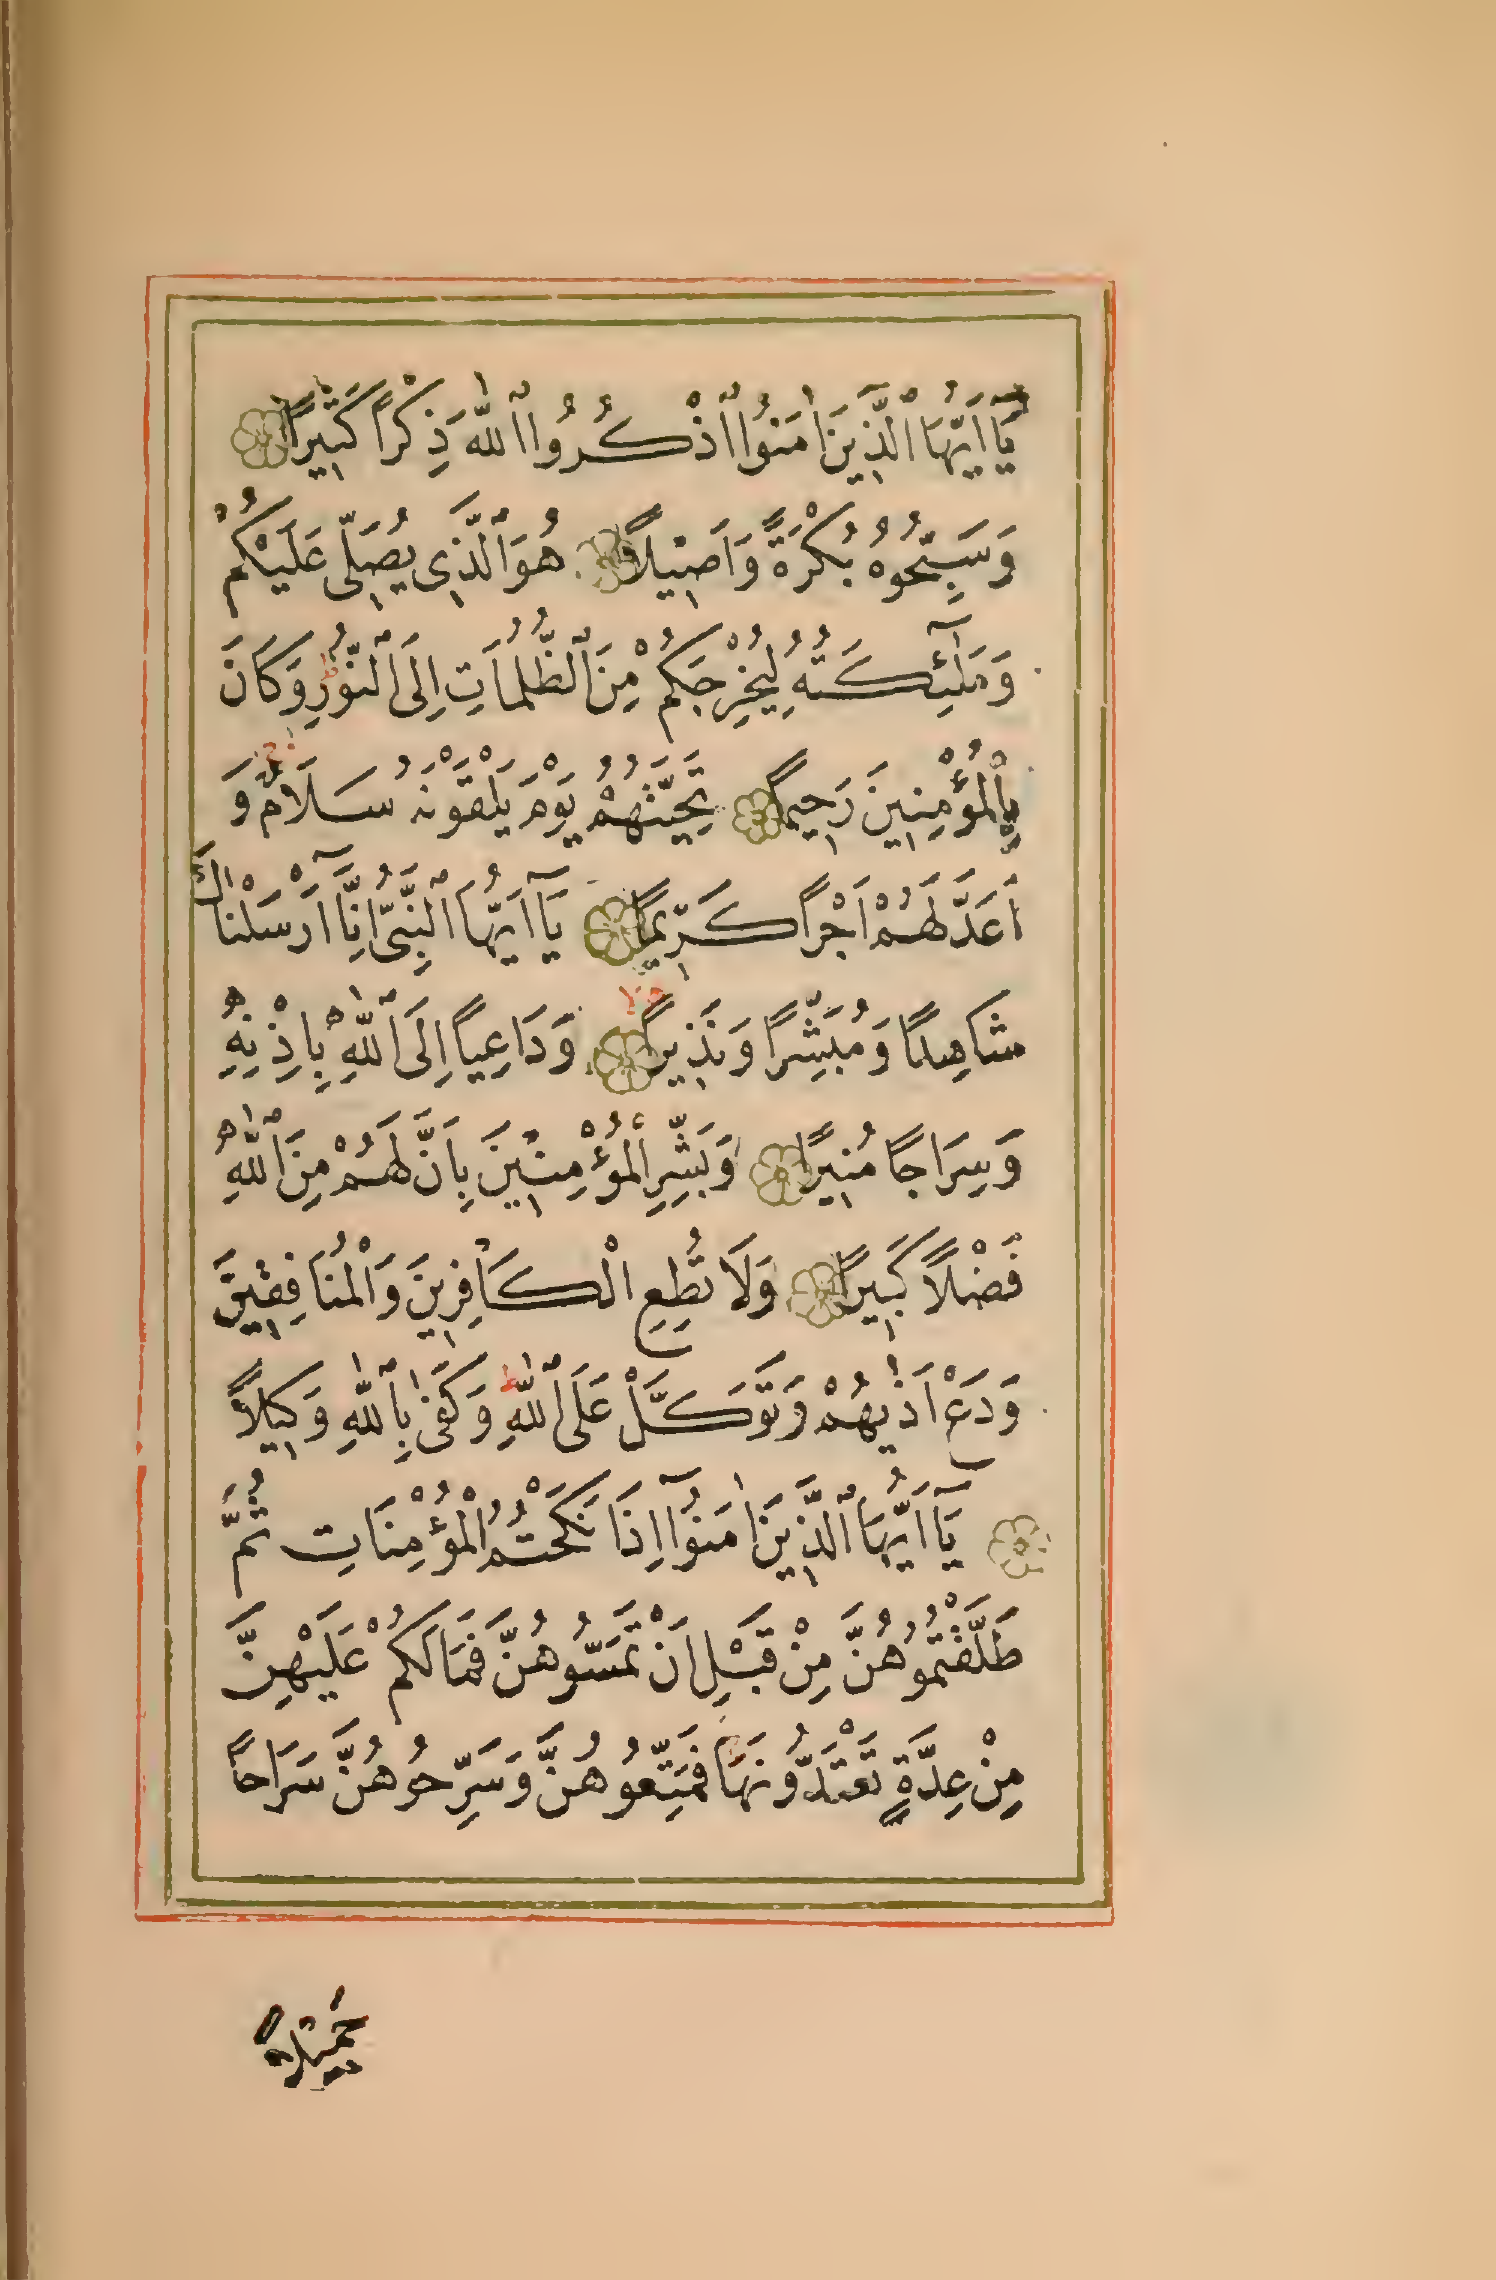 يَٓا اَيُّهَا ٱلَّذِينَ اٰمَنُوا ٱذْكُرُوا ٱللّٰهَ ذِكْرًا كَثِيرًا
وَسَبِّحُوهُ بُكْرَةً وَاَصِيلًا هُوَ ٱلَّذِي يُصَلِّى عَلَيْكُمْ
وَمَلٰٓئِكَتُهُ لِيُخْرِجَكُمْ مِنَ ٱلظُّلُمَاتِ اِلَى ٱلنُّورِ ط وَكَانَ
بِالْمُؤْمِنِينَ رَحِيمًا تَحِيَّتُهُمْ يَوْمَ يَلْقَوْنَهُ سَلَامٌ وَ
اَعَدَّ لَهُمْ اَجْرًا كَرِيمًا يَٓا اَيُّهَا ٱلنَّبِىُّ اِنَّٓا اَرْسَلْنَاكَ
شَاهِدًا وَمُبَشِّرًا وَنَذِيرًا وَدَاعِيًا اِلَى ٱللّٰهِ بِاِذْنِهِ
وَسِرَاجًا مُنِيرًا وَبَشِّرِ الْمُؤْمِنِينَ بِاَنَّ لَهُمْ مِنَ ٱللّٰهِ
فَضْلًا كَبِيرًا وَلَا تُطِعِ الْكَافِرِينَ وَالْمُنَافِقِينَ
وَدَعْ اَذٰيهُمْ وَتَوَكَّلْ عَلَى ٱللّٰهِ ط وَكَفٰى بِٱللّٰهِ وَكِيلًا
يَٓا اَيُّهَا ٱلَّذِينَ اٰمَنُوٓا اِذَا نَكَحْتُمُ الْمُؤْمِنَاتِ ثُمَّ
طَلَّقْتُمُوهُنَّ مِنْ قَبْلِ اَنْ تَمَسُّوهُنَّ فَمَا لَكُمْ عَلَيْهِنَّ
مِنْ عِدَّةٍ تَعْتَدُّونَهَا فَمَتِّعُوهُنَّ وَسَرِّحُوهُنَّ سَرَاحًا
جَمِيلًا